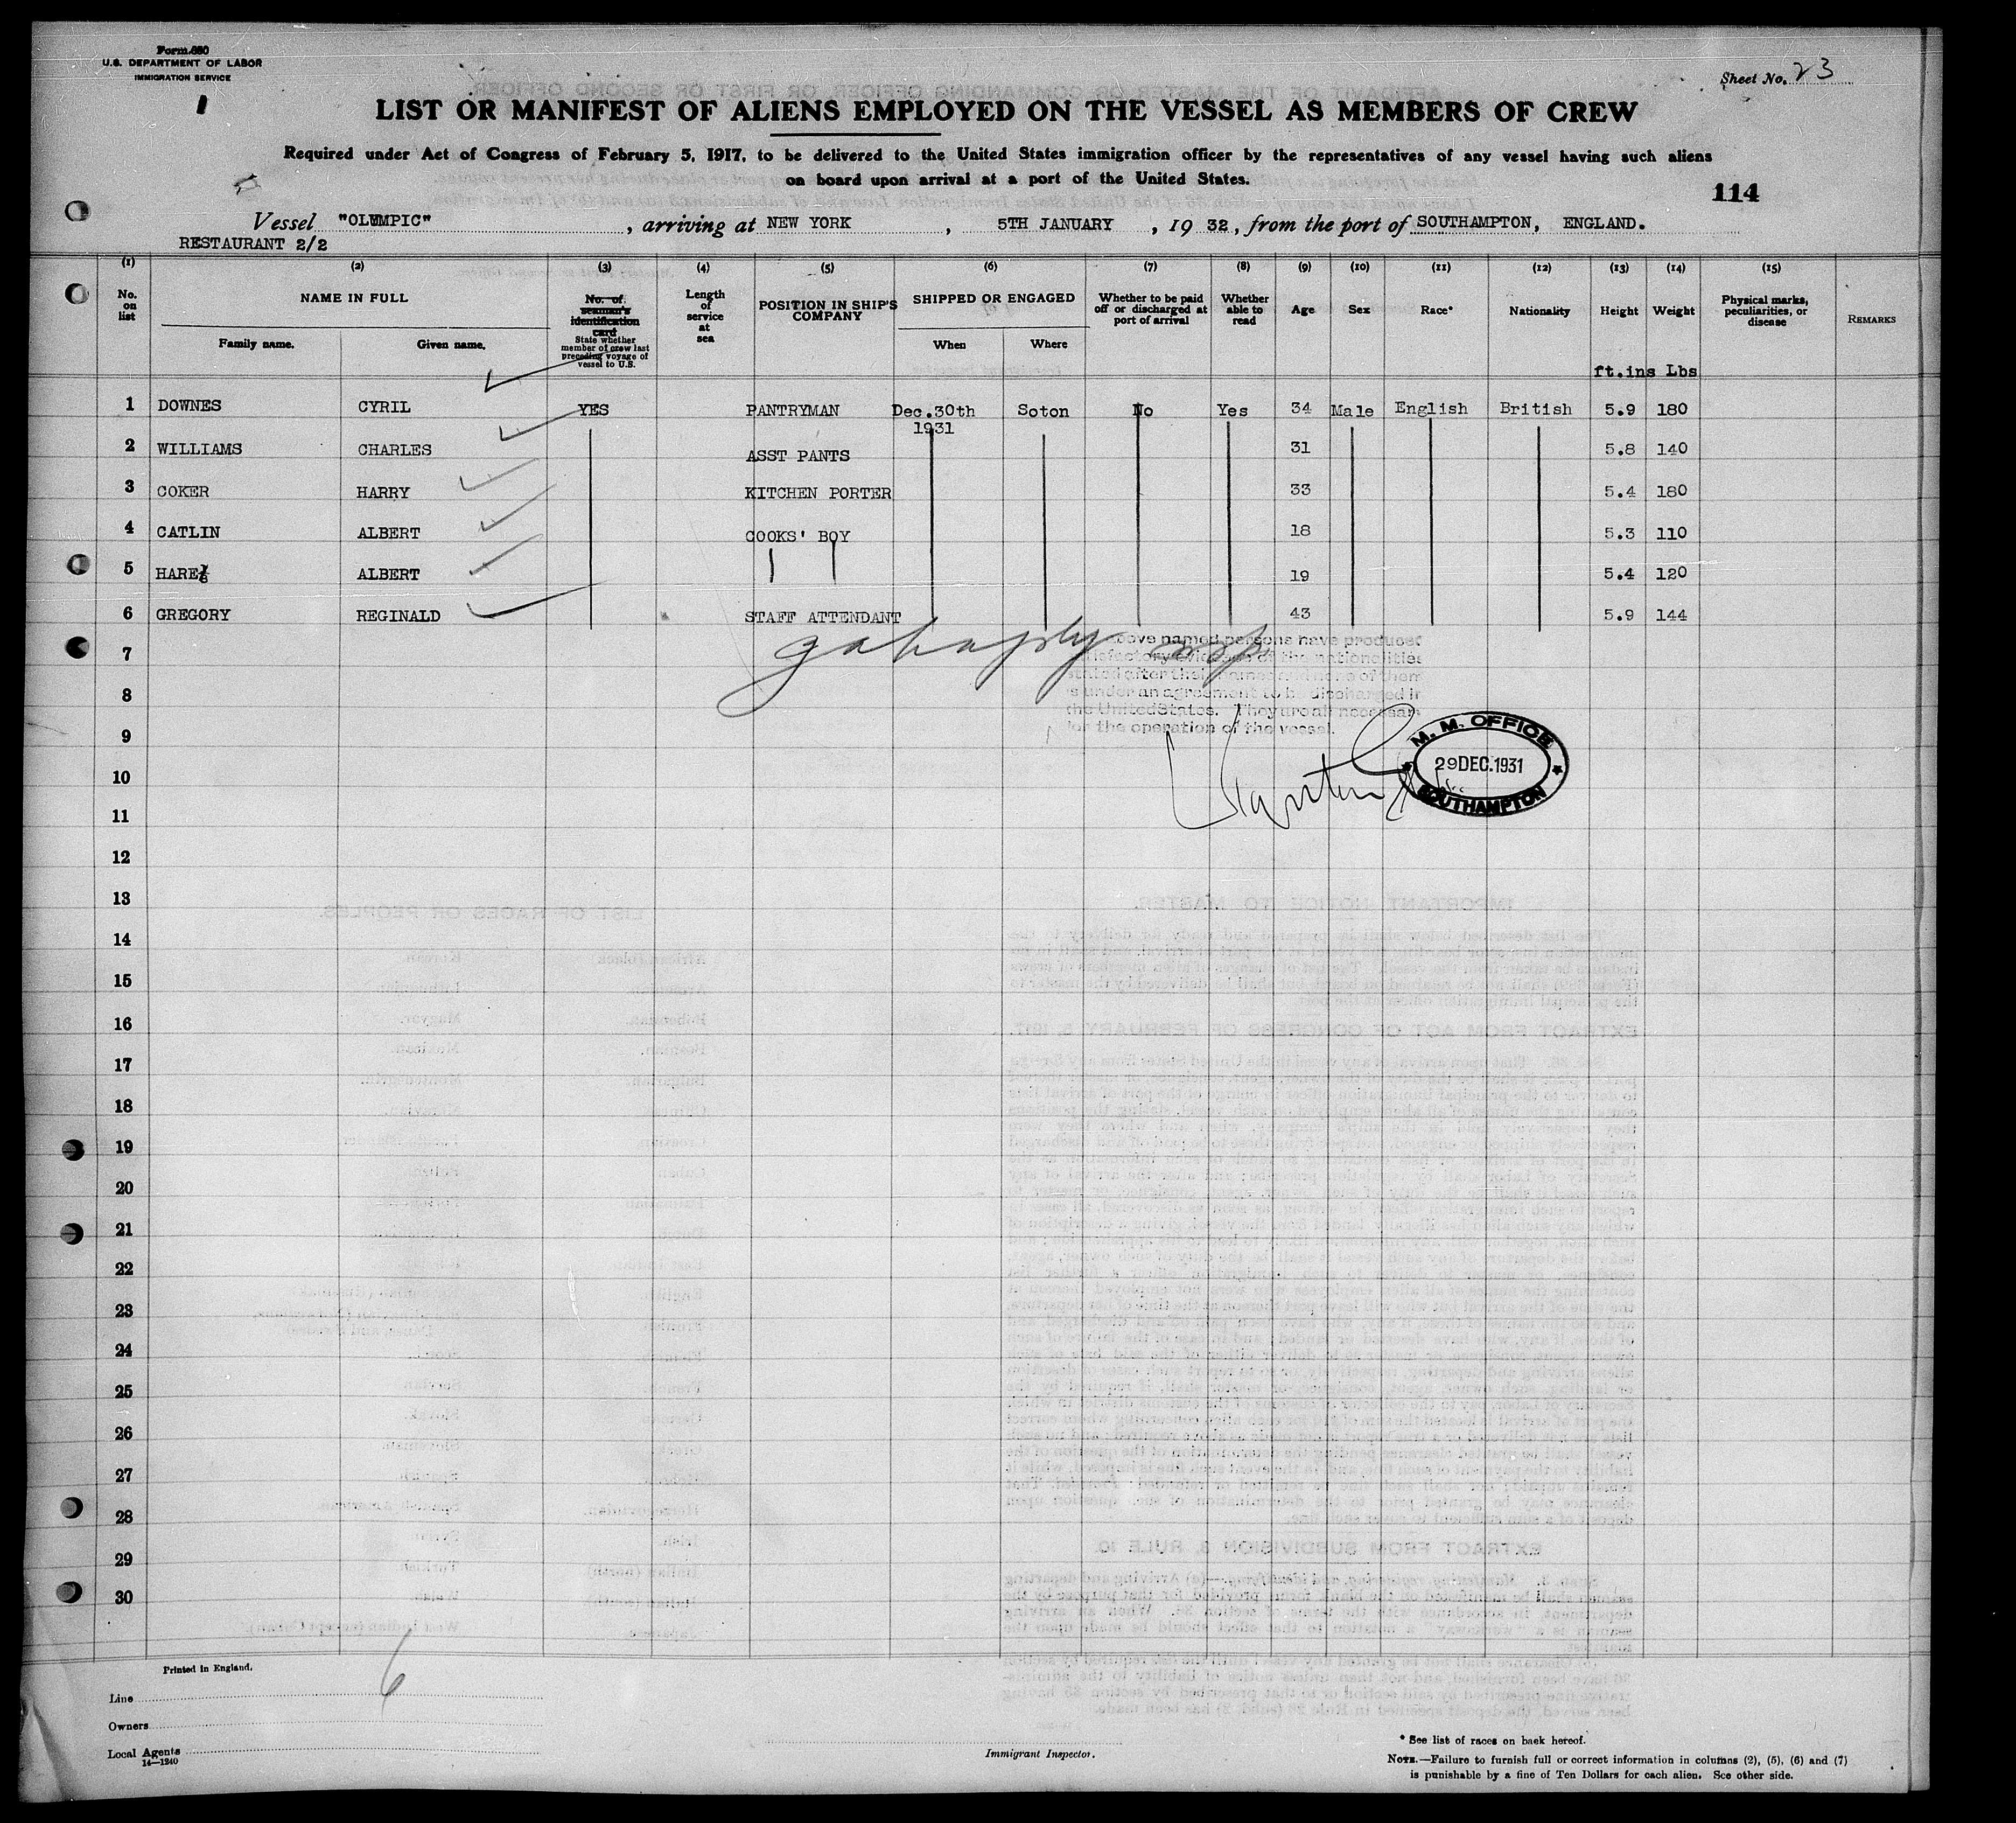 Form 680
U.S. DEPARTMENT OF LABOR
IMMIGRATION SERVICE
Sheet No. 23
LIST OR MANIFEST OF ALIENS EMPLOYED ON THE VESSEL AS MEMBERS OF CREW
Required under Act of Congress of February 5, 1917, to be delivered to the United States immigration officer by the representatives of any vessel having such aliens
on board upon arrival at a port of the United States.
114
Vessel "OLYMPIC", arriving at NEW YORK, 5TH JANUARY, 19 32, from the port of SOUTHAMPTON, ENGLAND.
RESTAURANT 2/2
(1) (2) (3) (4) (5) (6) (7) (8) (9) (10) (11) (12) (13) (14) (15)
No. on list
NAME IN FULL
Family name. Given name.
No. of seaman's identification card
State whether member of crew last preceding voyage of vessel to U.S.
Length of service at sea
POSITION IN SHIP'S COMPANY
SHIPPED OR ENGAGED
When Where
Whether to be paid off or discharged at port of arrival
Whether able to read
Age Sex Race* Nationality Height Weight
Physical marks, peculiarities, or disease
REMARKS
ft.ins Lbs
1 DOWNES CYRIL YES PANTRYMAN Dec.30th 1931 Soton No Yes 34 Male English British 5.9 180
2 WILLIAMS CHARLES ASST PANTS 31 5.8 140
3 COKER HARRY KITCHEN PORTER 33 5.4 180
4 CATLIN ALBERT COOKS' BOY 18 5.3 110
5 HARE ALBERT 19 5.4 120
6 GREGORY REGINALD STAFF ATTENDANT 43 5.9 144
7
8
9
10
11
12
13
14
15
16
17
18
19
20
21
22
23
24
25
26
27
28
29
30
ove named persons have produced
isfactory evidence of the nationalities
stated after their names and none of them
is under an agreement to be discharged in
the United States. They are all necessary
for the operation of the vessel.
M. M. OFFICE
29 DEC. 1931
SOUTHAMPTON
Printed in England.
6
Line
Owners
Local Agents
14—1240
Immigrant Inspector.
* See list of races on back hereof.
NOTE.—Failure to furnish full or correct information in columns (2), (5), (6) and (7)
is punishable by a fine of Ten Dollars for each alien. See other side.